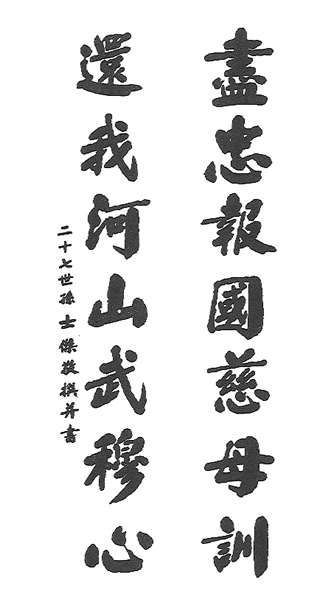 盡忠報國慈母訓
還我河山武穆心
二十七世孫士傑敬撰並書